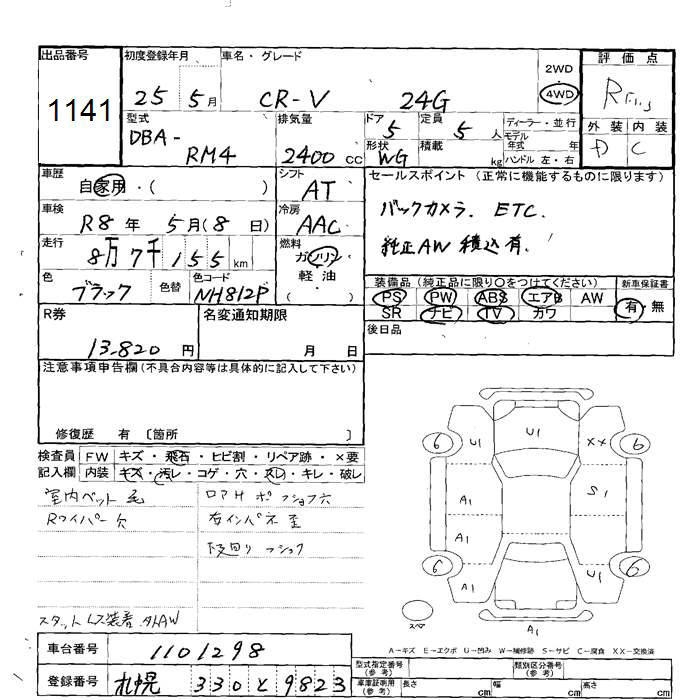 出品番号 初度登録年月 車名・グレード 評価点
1141 25 5月 CR-V 24G 2WD 4WD R
型式 排気量 ドア 定員 ディーラー・並行 外装 内装
DBA- RM4 2400cc 5 5人 モデル年式 年式 D C
形状 WG 積載 kg ハンドル 左・右
車歴 シフト セールスポイント (正常に機能するものに限ります)
自家用・( ) AT
車検 冷房 バックカメラ. ETC.
R8年 5月(8日) AAC 純正AW 積込有.
走行 燃料
8万7千155km ガソリン 軽油 ( )
色 色替 色コード 装備品 (純正品に限り○をつけてください) 新車保証書
ブラック NH812P PS PW ABS エアB AW 有・無
SR ナビ TV カワ
R券 名変通知期限 後日品
13,820円 月 日
注意事項申告欄(不具合内容等は具体的に記入して下さい)
修復歴 有 〔箇所 〕
検査員 FW キズ・飛石・ヒビ割・リペア跡・×要
記入欄 内装 キズ・汚レ・コゲ・穴・スレ・キレ・破レ
室内ペット毛
Rワイパー欠 右インパネ
下廻り
スタットレス装着
6 U1 U1 XX 6
A1 S1
A1
6 A1 U1 6
スペア A1
A-キズ E-エクボ U-凹み W-補修跡 S-サビ C-腐食 XX-交換済
車台番号 1101298
登録番号 札幌 330 と 9823
型式指定番号(参考) 類別区分番号(参考)
車庫証明用(参考) 長さ cm 幅 cm 高さ cm